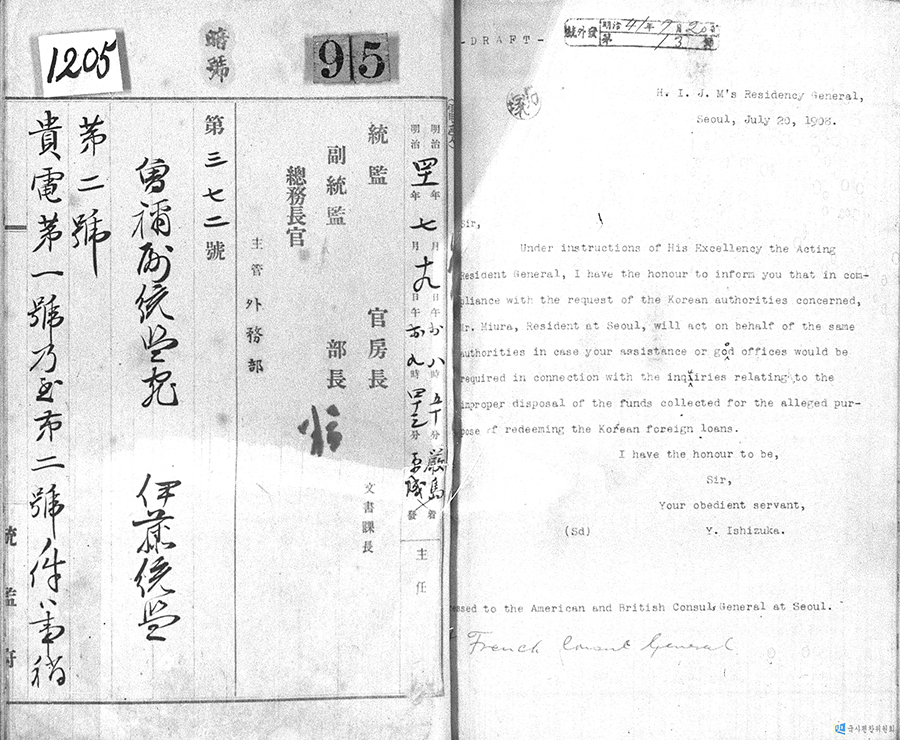 1205
暗號
95
明治 年 月 日午 八時五十分 嚴島 着
明治 年七月 日午前九時四十三分 發
主任
統監 官房長
文書課長
副統監 部長
總務長官
主管 外務部
第三七二號
曾禰副統監宛 伊藤統監
第二號
貴電第一號乃至第二號ノ件
統監府
-DRAFT-
號外發 明治41年7月20日
第13號
H. I. J. M's Residency General,
Seoul, July 20, 1908.
Sir,
Under instructions of His Excellency the Acting
Resident General, I have the honour to inform you that in com-
pliance with the request of the Korean authorities concerned,
Mr. Miura, Resident at Seoul, will act on behalf of the same
authorities in case your assistance or good offices would be
required in connection with the inquiries relating to the
improper disposal of the funds collected for the alleged pur-
pose of redeeming the Korean foreign loans.
I have the honour to be,
Sir,
Your obedient servant,
(Sd) Y. Ishizuka.
essed to the American and British Consul General at Seoul.
French Consul General
국사편찬위원회